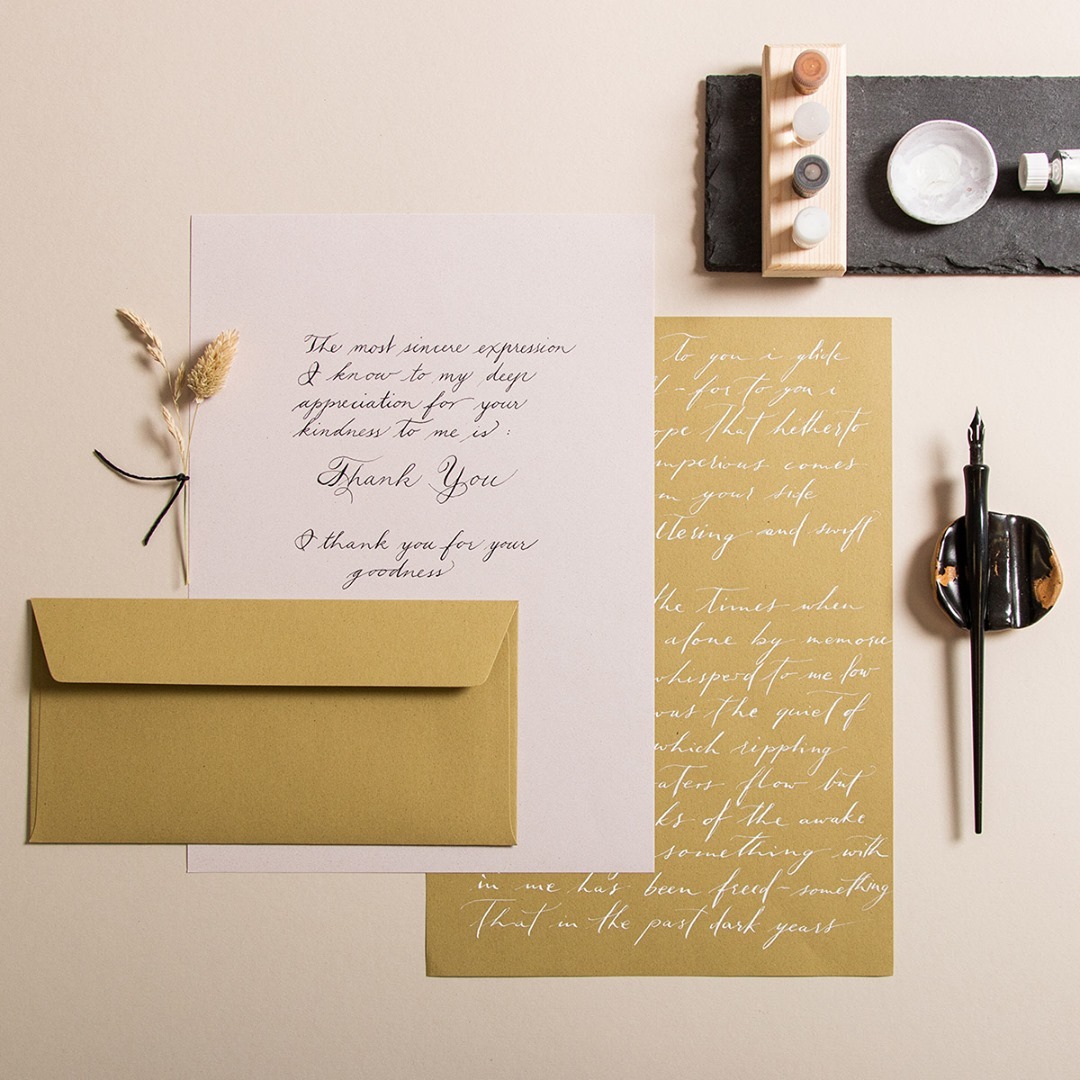 The most sincere expression
I know to my deep
appreciation for your
kindness to me is :
Thank You
I thank you for your
goodness
To you i glide
- for to you i
that hitherto
imperious comes
your side
and swift
the times when
alone by memorie
whisperd to me low
was the quiet of
which rippling
flow but
of the awake
something with
in me has been freed - something
that in the past dark years